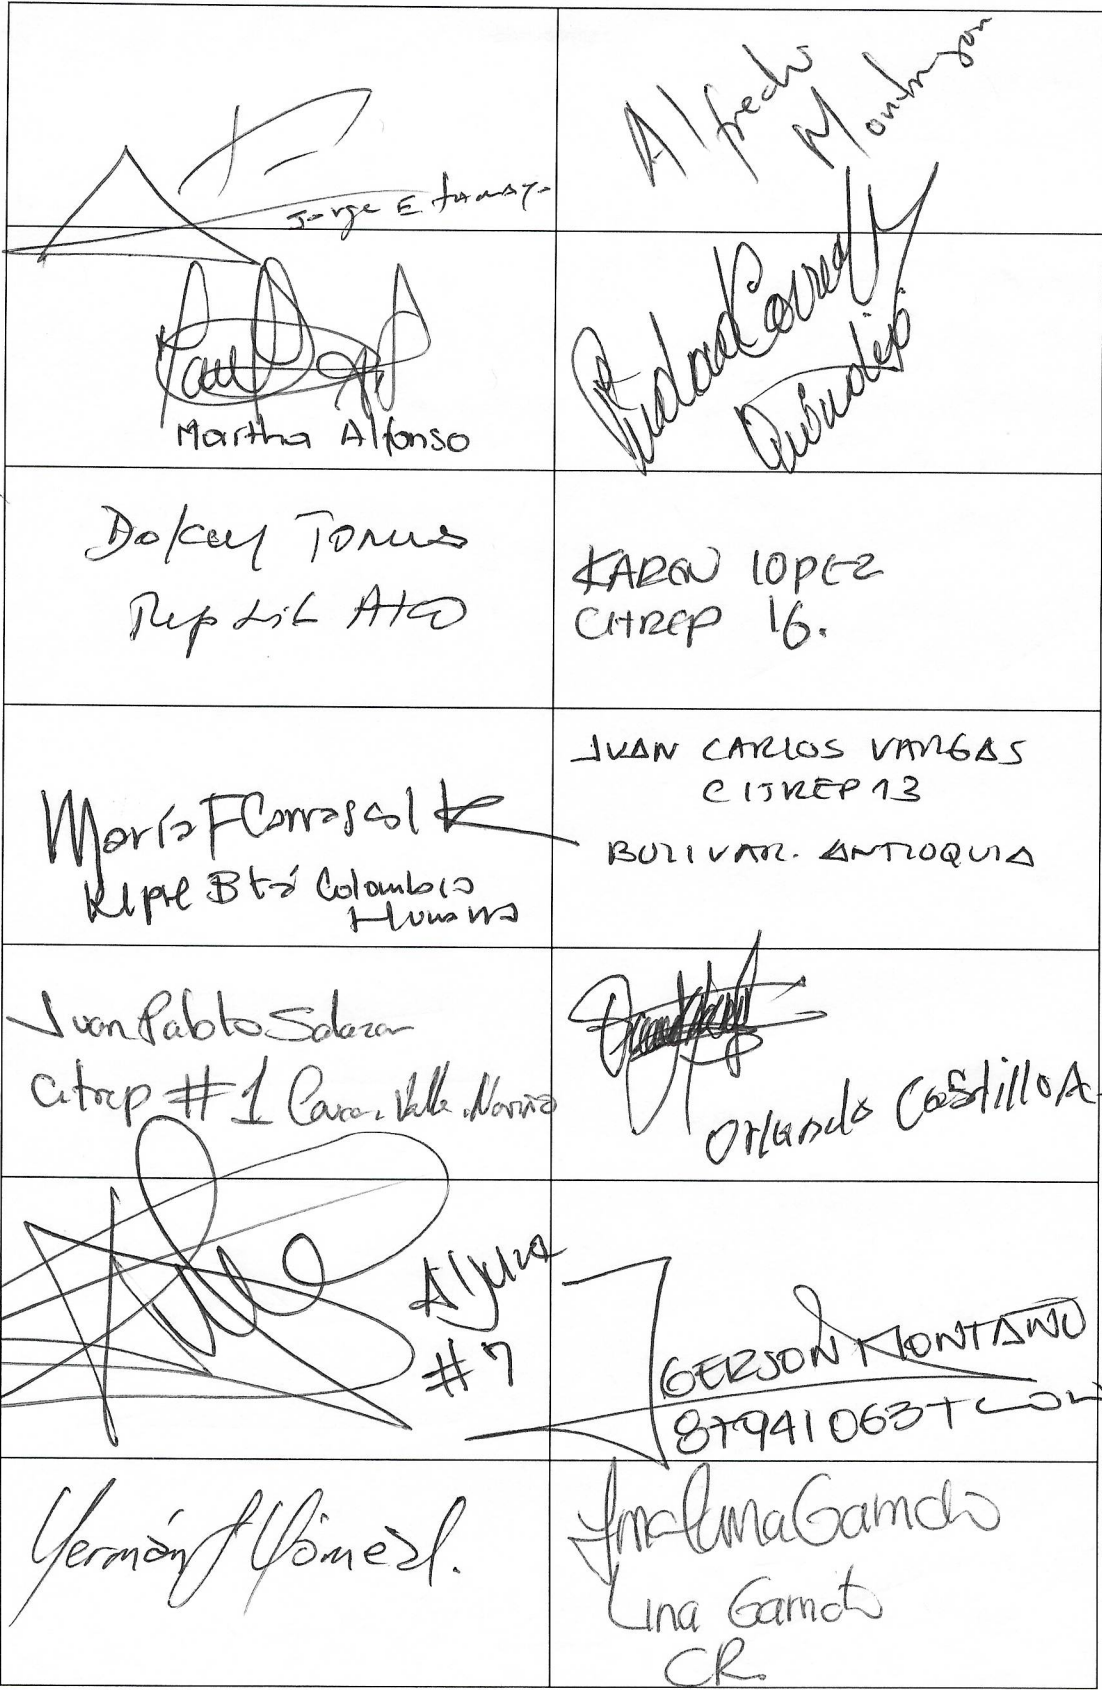 Jorge E Tamayo
Alfredo
Mondragon
Martha Alfonso
Piedad Correal
Quindío
Dolcey Torres
Rep Lib Atco
KAREN LOPEZ
CITREP 16.
María F Carrascal
Repre Btá Colombia
Humana
JUAN CARLOS VARGAS
CITREP 13
BOLIVAR. ANTIOQUIA
Juan Pablo Salazar
Citrep #1 Cauca. Valle. Nariño
Orlando Castillo A.
#7
GERSON MONTAÑO
Germán Gómez
Lina Garrido
Lina Garrido
CR.